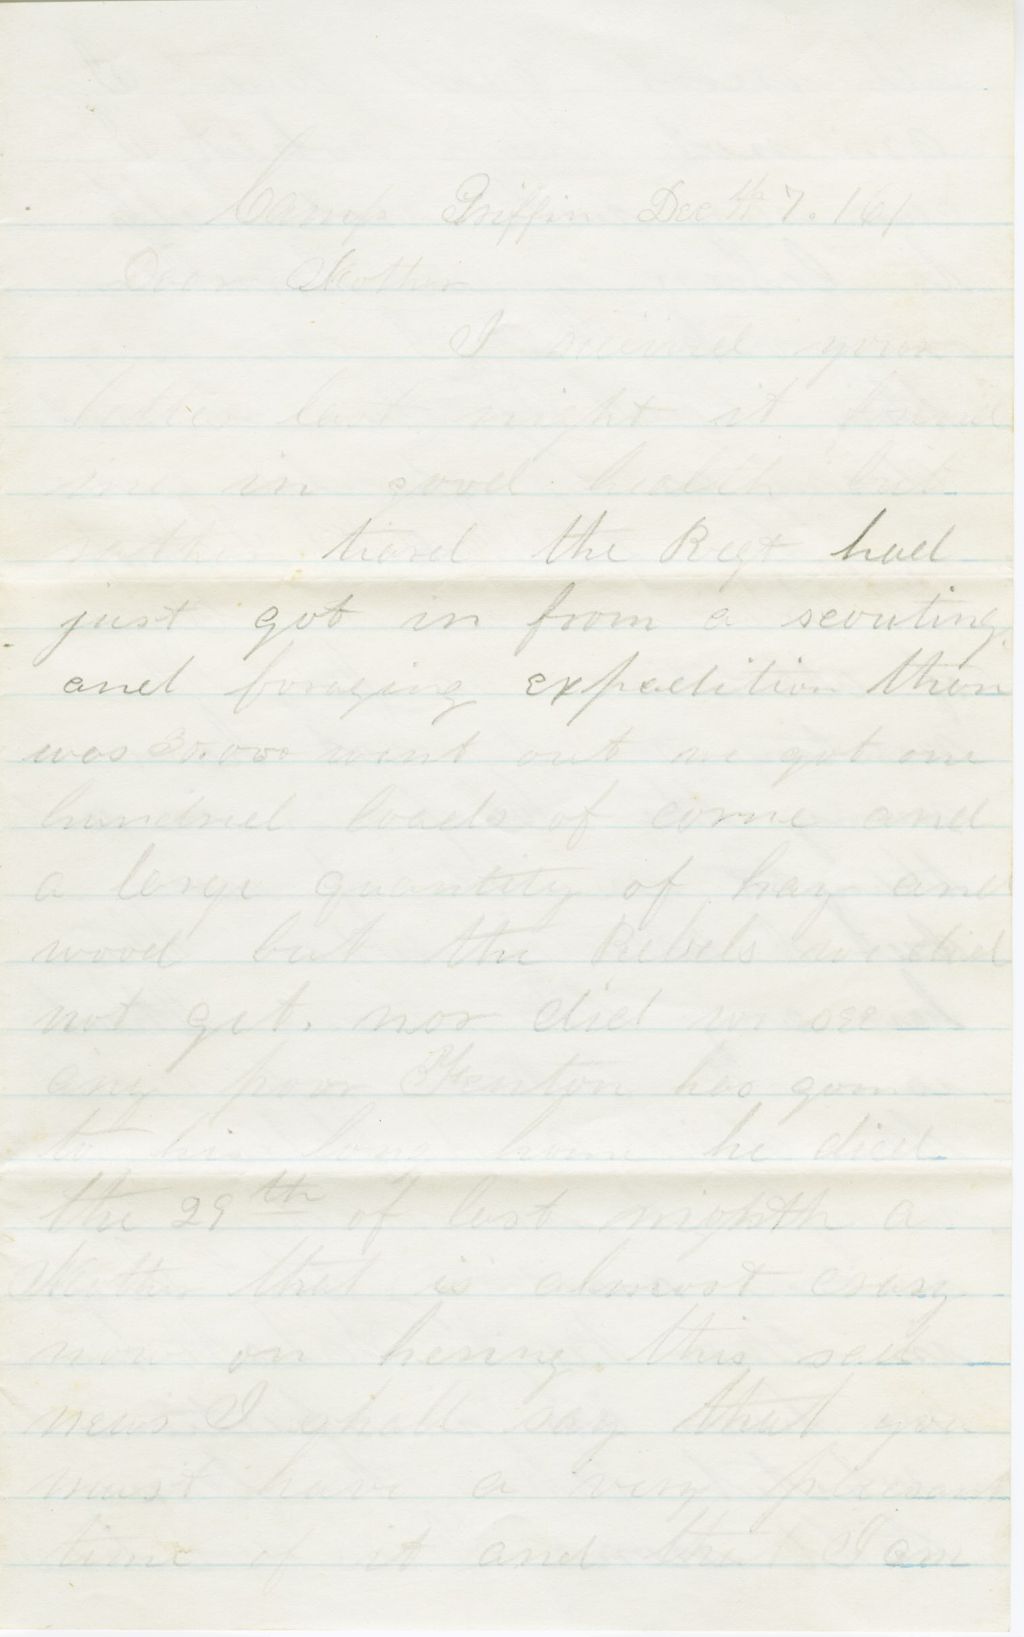 Camp Griffin Dec th 7. 161
Dear Mother
I reicived your
letter last night it found
me in good health but
rather tiard the Regt had
just got in from a scouting
and foraging expedition thear
was 30.000 went out we got one
hundred loads of corne and
a large quantity of hay and
wood but the Rebels we did
not get. nor did we see
any poor has gone
to his long home he died
the 29th of last mophth a
Mother that is almost crazy
now on hering this sad
news I shall say that you
must have a very pleasant
time of it and that I am